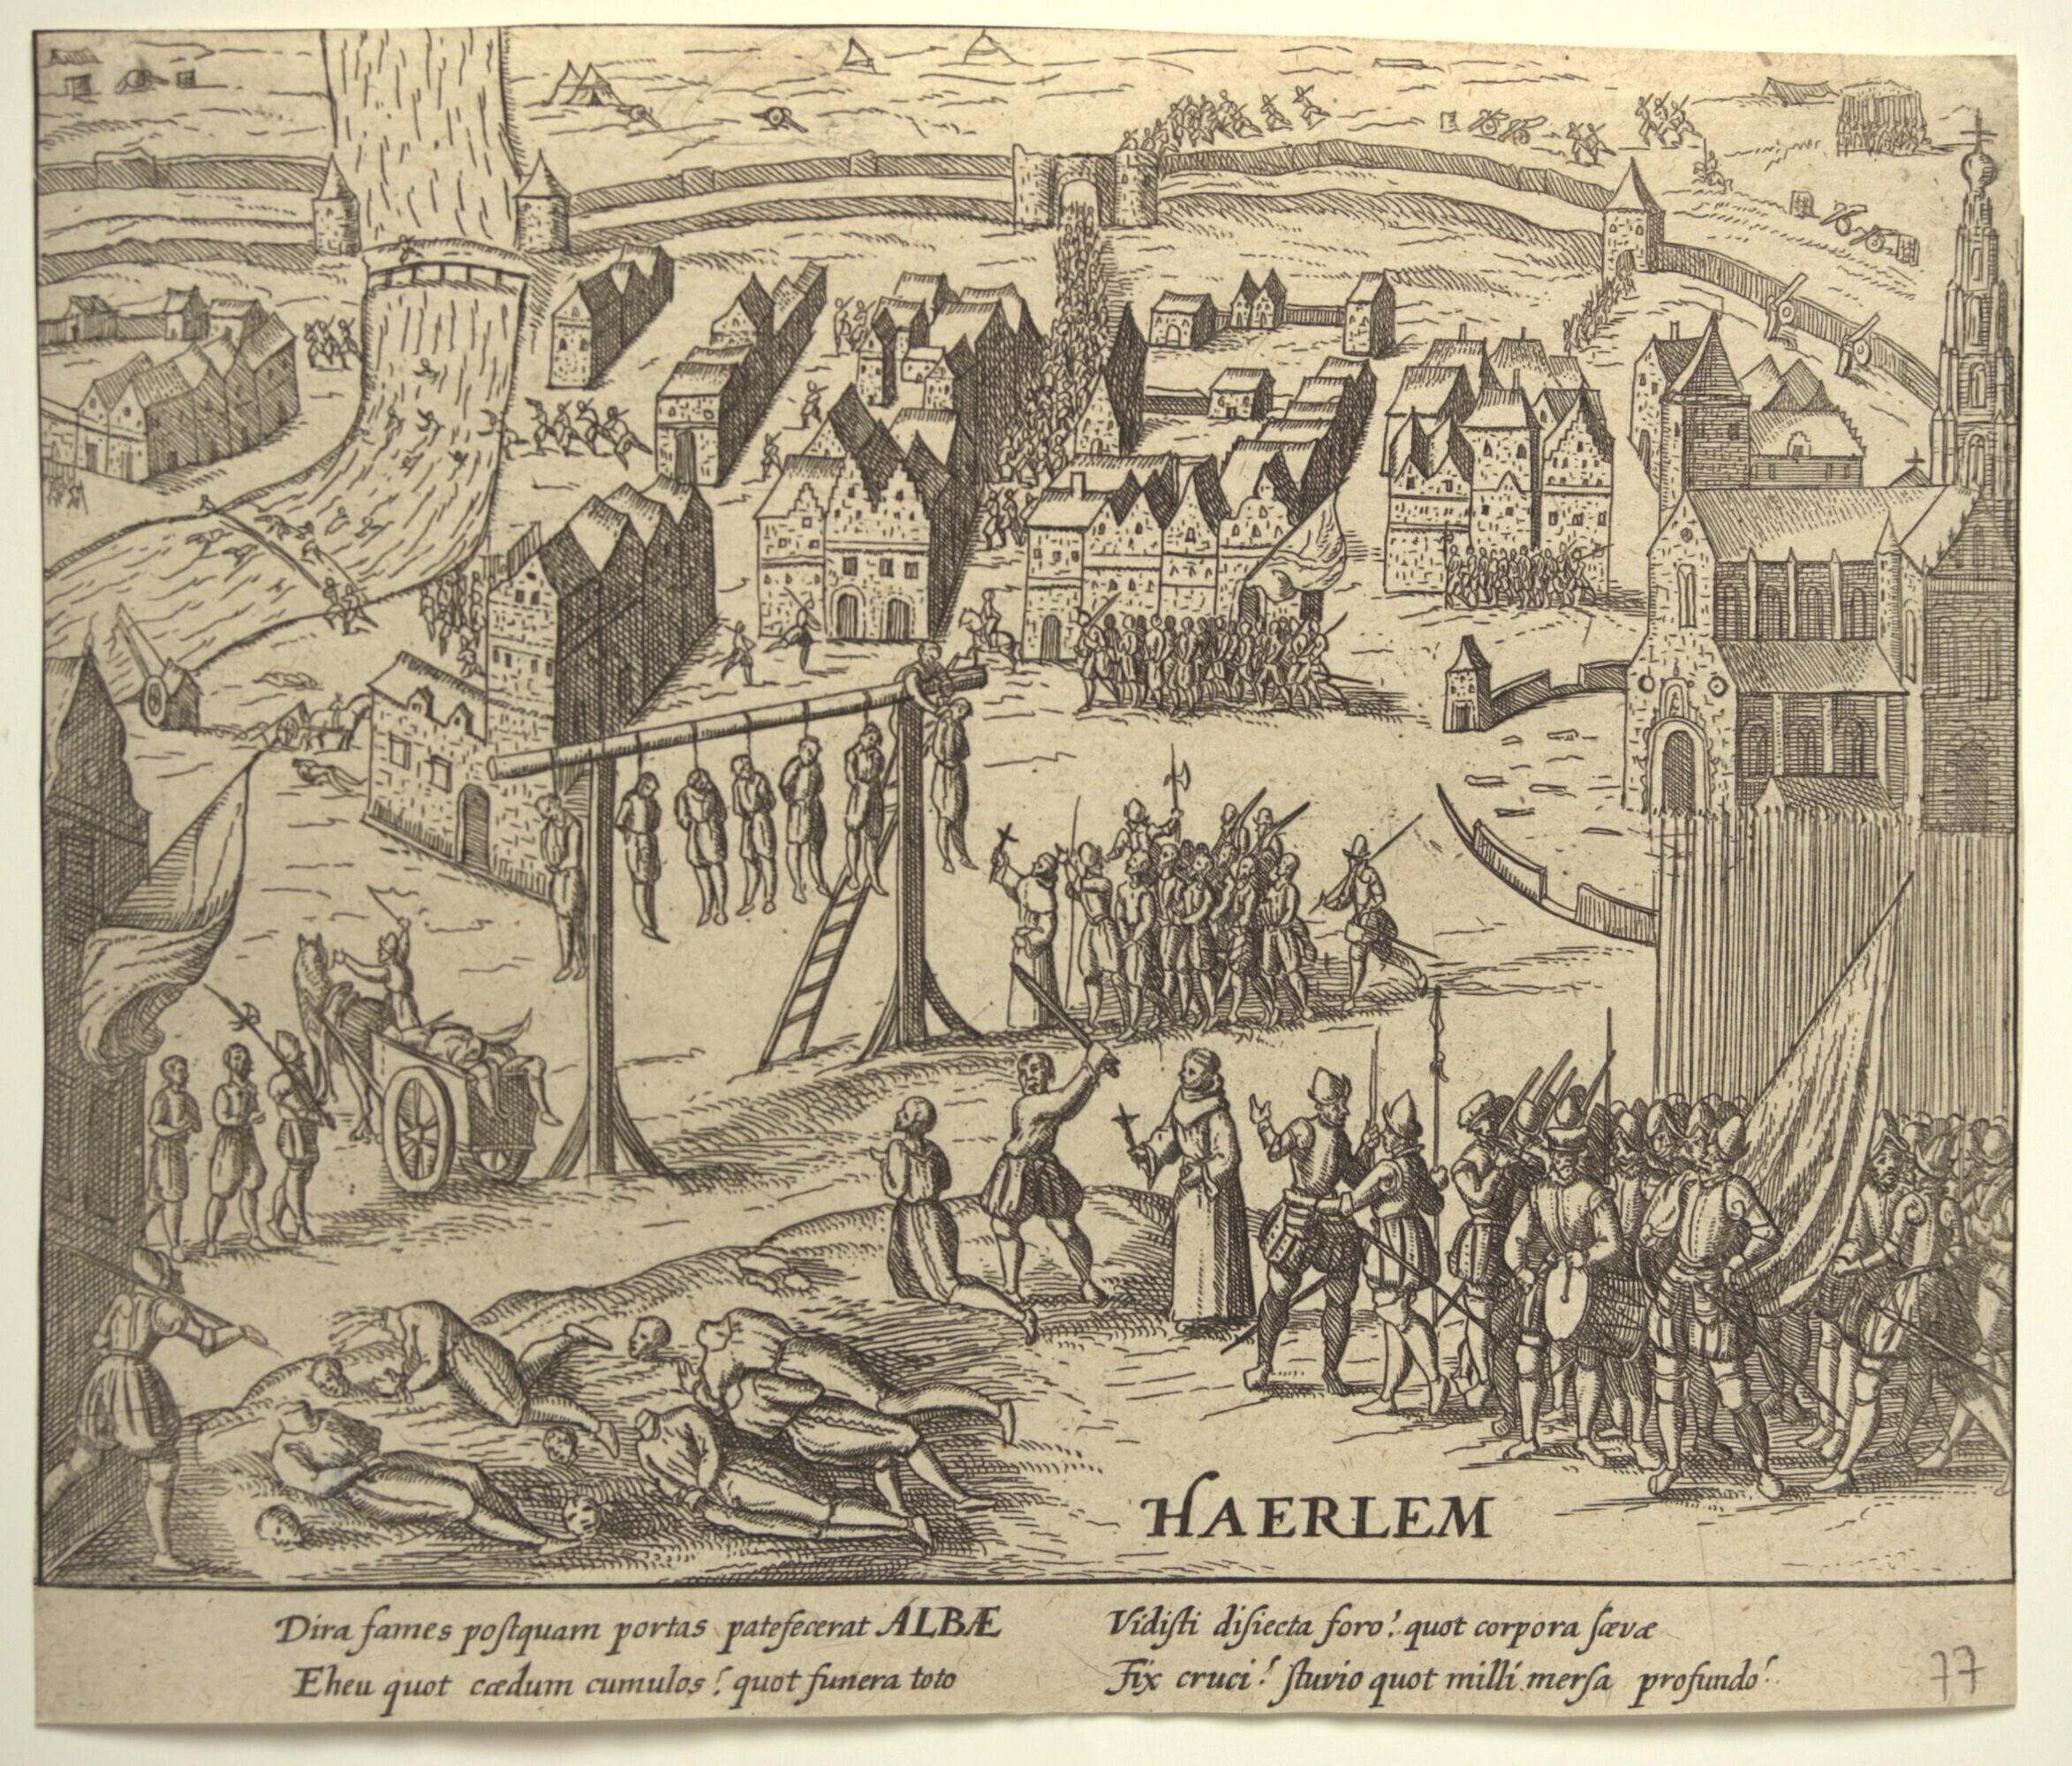 HAERLEM
Dira fames poſtquam portas patefecerat ALBÆ
Eheu quot cædum cumulos! quot funera toto
Vidiſti diſiecta foro! quot corpora ſævæ
Fix cruci! fluvio quot milli merſa profundo!
77